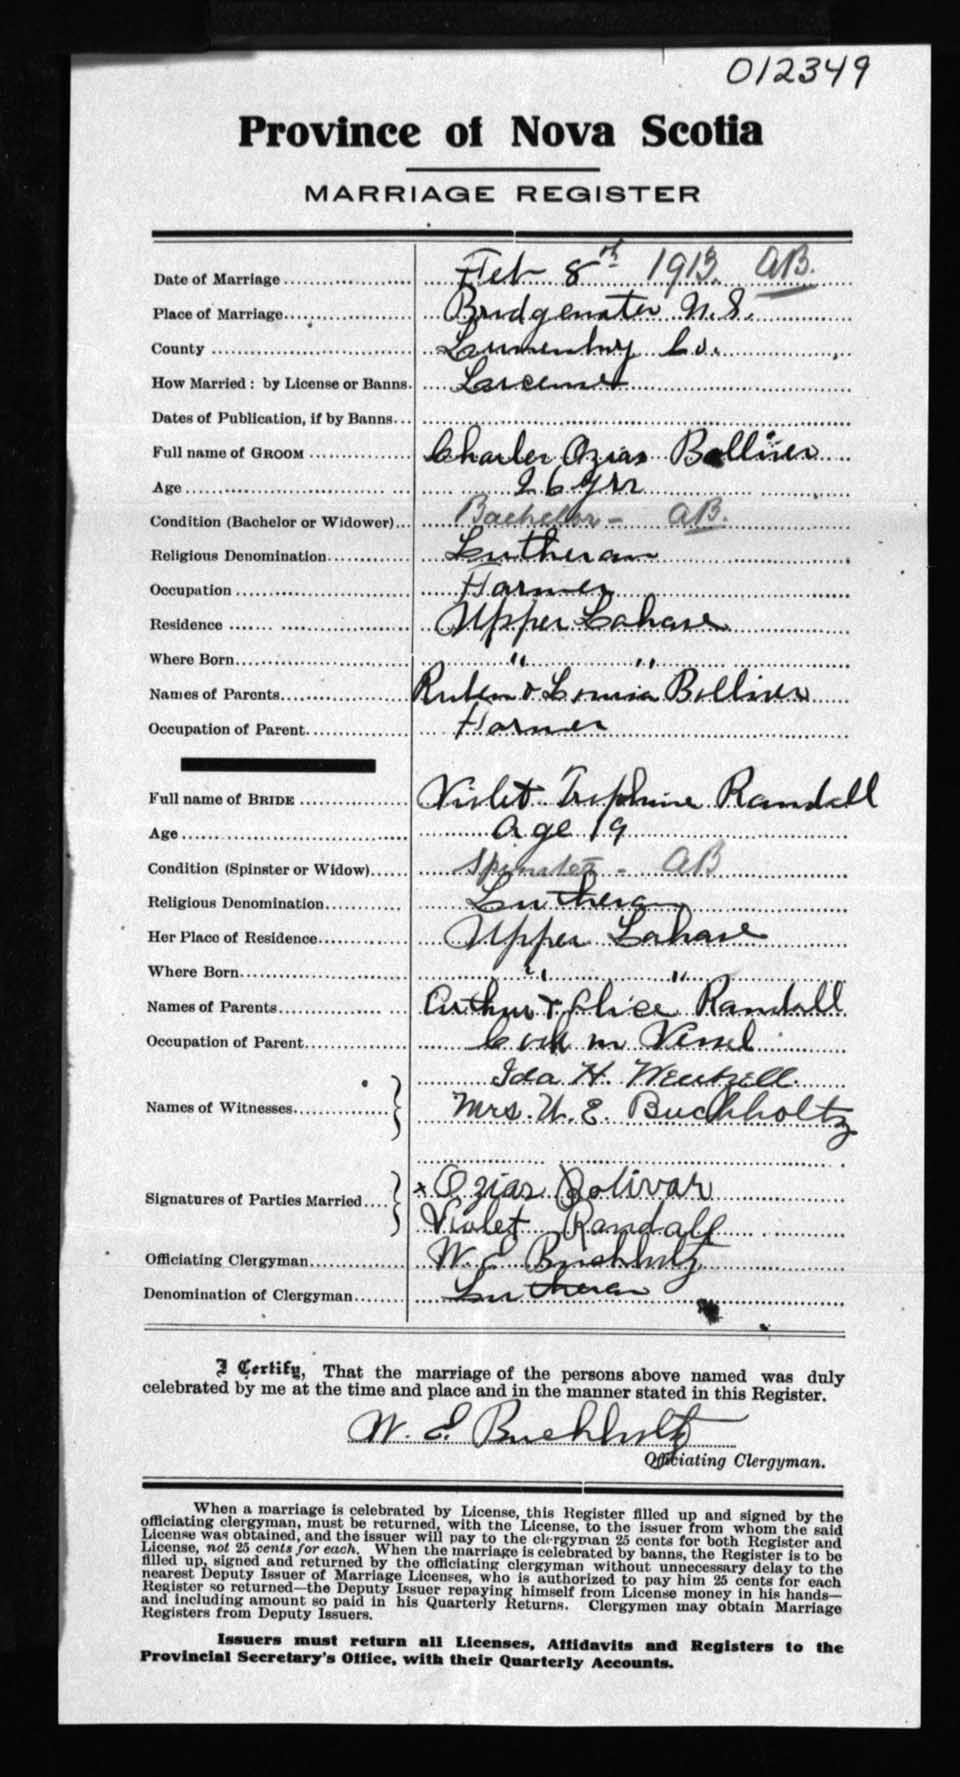 012349
Province of Nova Scotia
MARRIAGE REGISTER
Date of Marriage Feb 8th 1913. AB.
Place of Marriage Bridgewater N.S.
County Lunenburg Co.
How Married: by License or Banns. License
Dates of Publication, if by Banns
Full name of GROOM Charles Ozias Bolliver
Age 26 yrs
Condition (Bachelor or Widower) Bachelor - AB.
Religious Denomination Lutheran
Occupation Farmer
Residence Upper Lahave
Where Born " "
Names of Parents Ruben & Louisa Bolliver
Occupation of Parent Farmer
Full name of BRIDE Violet Triphine Randall
Age Age 19
Condition (Spinster or Widow) Spinster - AB
Religious Denomination Lutheran
Her Place of Residence Upper Lahave
Where Born " "
Names of Parents Arthur & Alice Randall
Occupation of Parent Cook on Vessel
Ida H. Wentzell.
Names of Witnesses Mrs. W. E. Buchholtz
Signatures of Parties Married x Ozias Bolivar
Violet Randall
Officiating Clergyman W. E. Buchholtz
Denomination of Clergyman Lutheran
I Certify, That the marriage of the persons above named was duly
celebrated by me at the time and place and in the manner stated in this Register.
W. E. Buchholtz
Officiating Clergyman.
When a marriage is celebrated by License, this Register filled up and signed by the
officiating clergyman, must be returned, with the License, to the issuer from whom the said
License was obtained, and the issuer will pay to the clergyman 25 cents for both Register and
License, not 25 cents for each. When the marriage is celebrated by banns, the Register is to be
filled up, signed and returned by the officiating clergyman without unnecessary delay to the
nearest Deputy Issuer of Marriage Licenses, who is authorized to pay him 25 cents for each
Register so returned—the Deputy Issuer repaying himself from License money in his hands—
and including amount so paid in his Quarterly Returns. Clergymen may obtain Marriage
Registers from Deputy Issuers.
Issuers must return all Licenses, Affidavits and Registers to the
Provincial Secretary's Office, with their Quarterly Accounts.